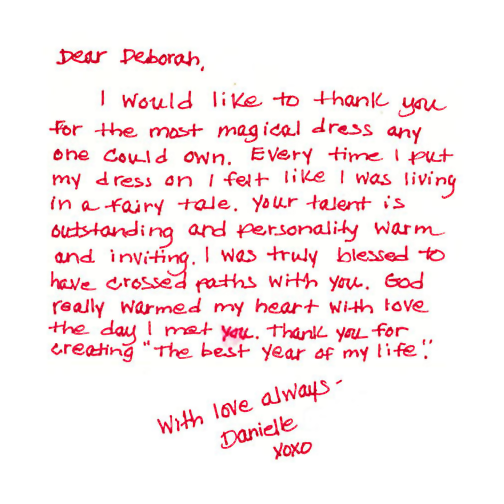 Dear Deborah,
I would like to thank you
for the most magical dress any
one could own. Every time I put
my dress on I felt like I was living
in a fairy tale. Your talent is
outstanding and personality warm
and inviting. I was truly blessed to
have crossed paths with you. God
really warmed my heart with love
the day I met you. Thank you for
creating "The best year of my life".
With love always-
Danielle
xoxo